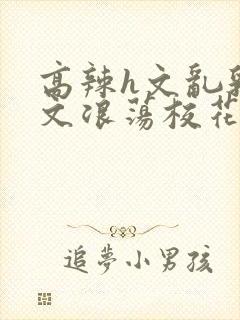 高辣h文乱乳
文浪荡校花
追夢小男孩